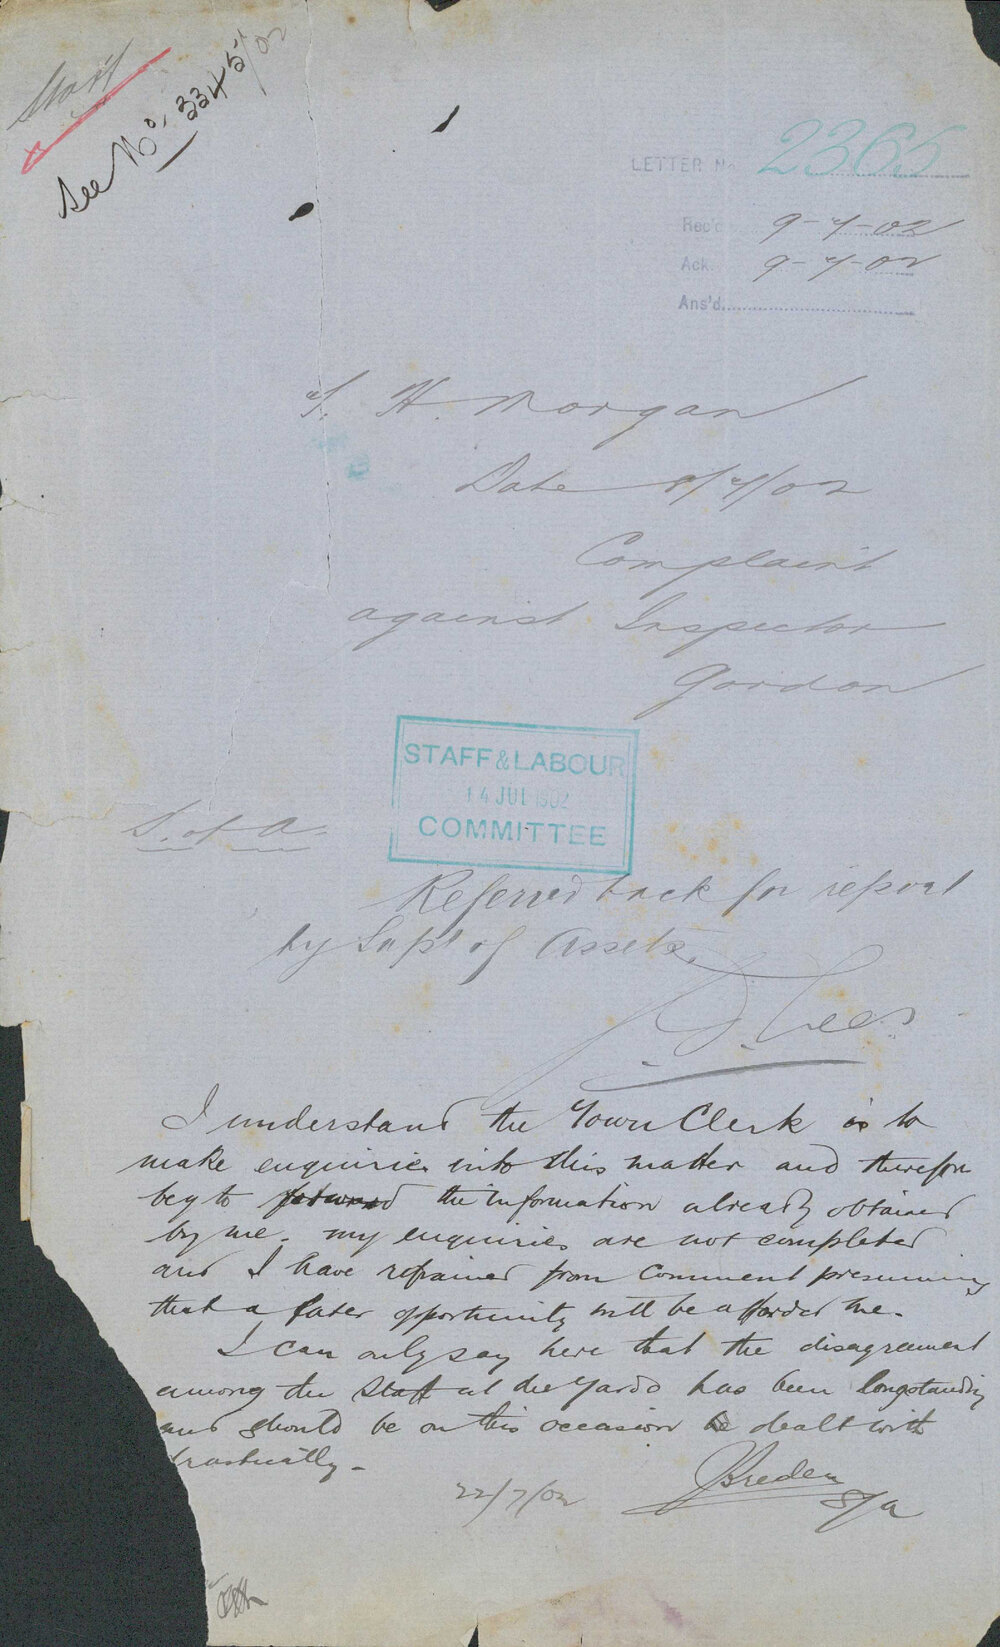 Staff
See No. 3345/02
LETTER No. 2365
Rec'd 9-7-02
Ack. 9-7-02
Ans'd
T. H. Morgan
Date 8/7/02
Complaint
against Inspector
Gordon
STAFF & LABOUR
14 JUL 1902
COMMITTEE
S. of A.
Referred back for report
by Supt of Assets.
I understand the Town Clerk is to
make enquiries into this matter and therefore
beg to forward the information already obtained
by me. my enquiries are not completed
and I have refrained from comment presuming
that a later opportunity will be afforded me.
I can only say here that the disagreement
among the Staff at the Yards has been longstanding
and should be on this occasion be dealt with
drastically -
22/7/02
S/A